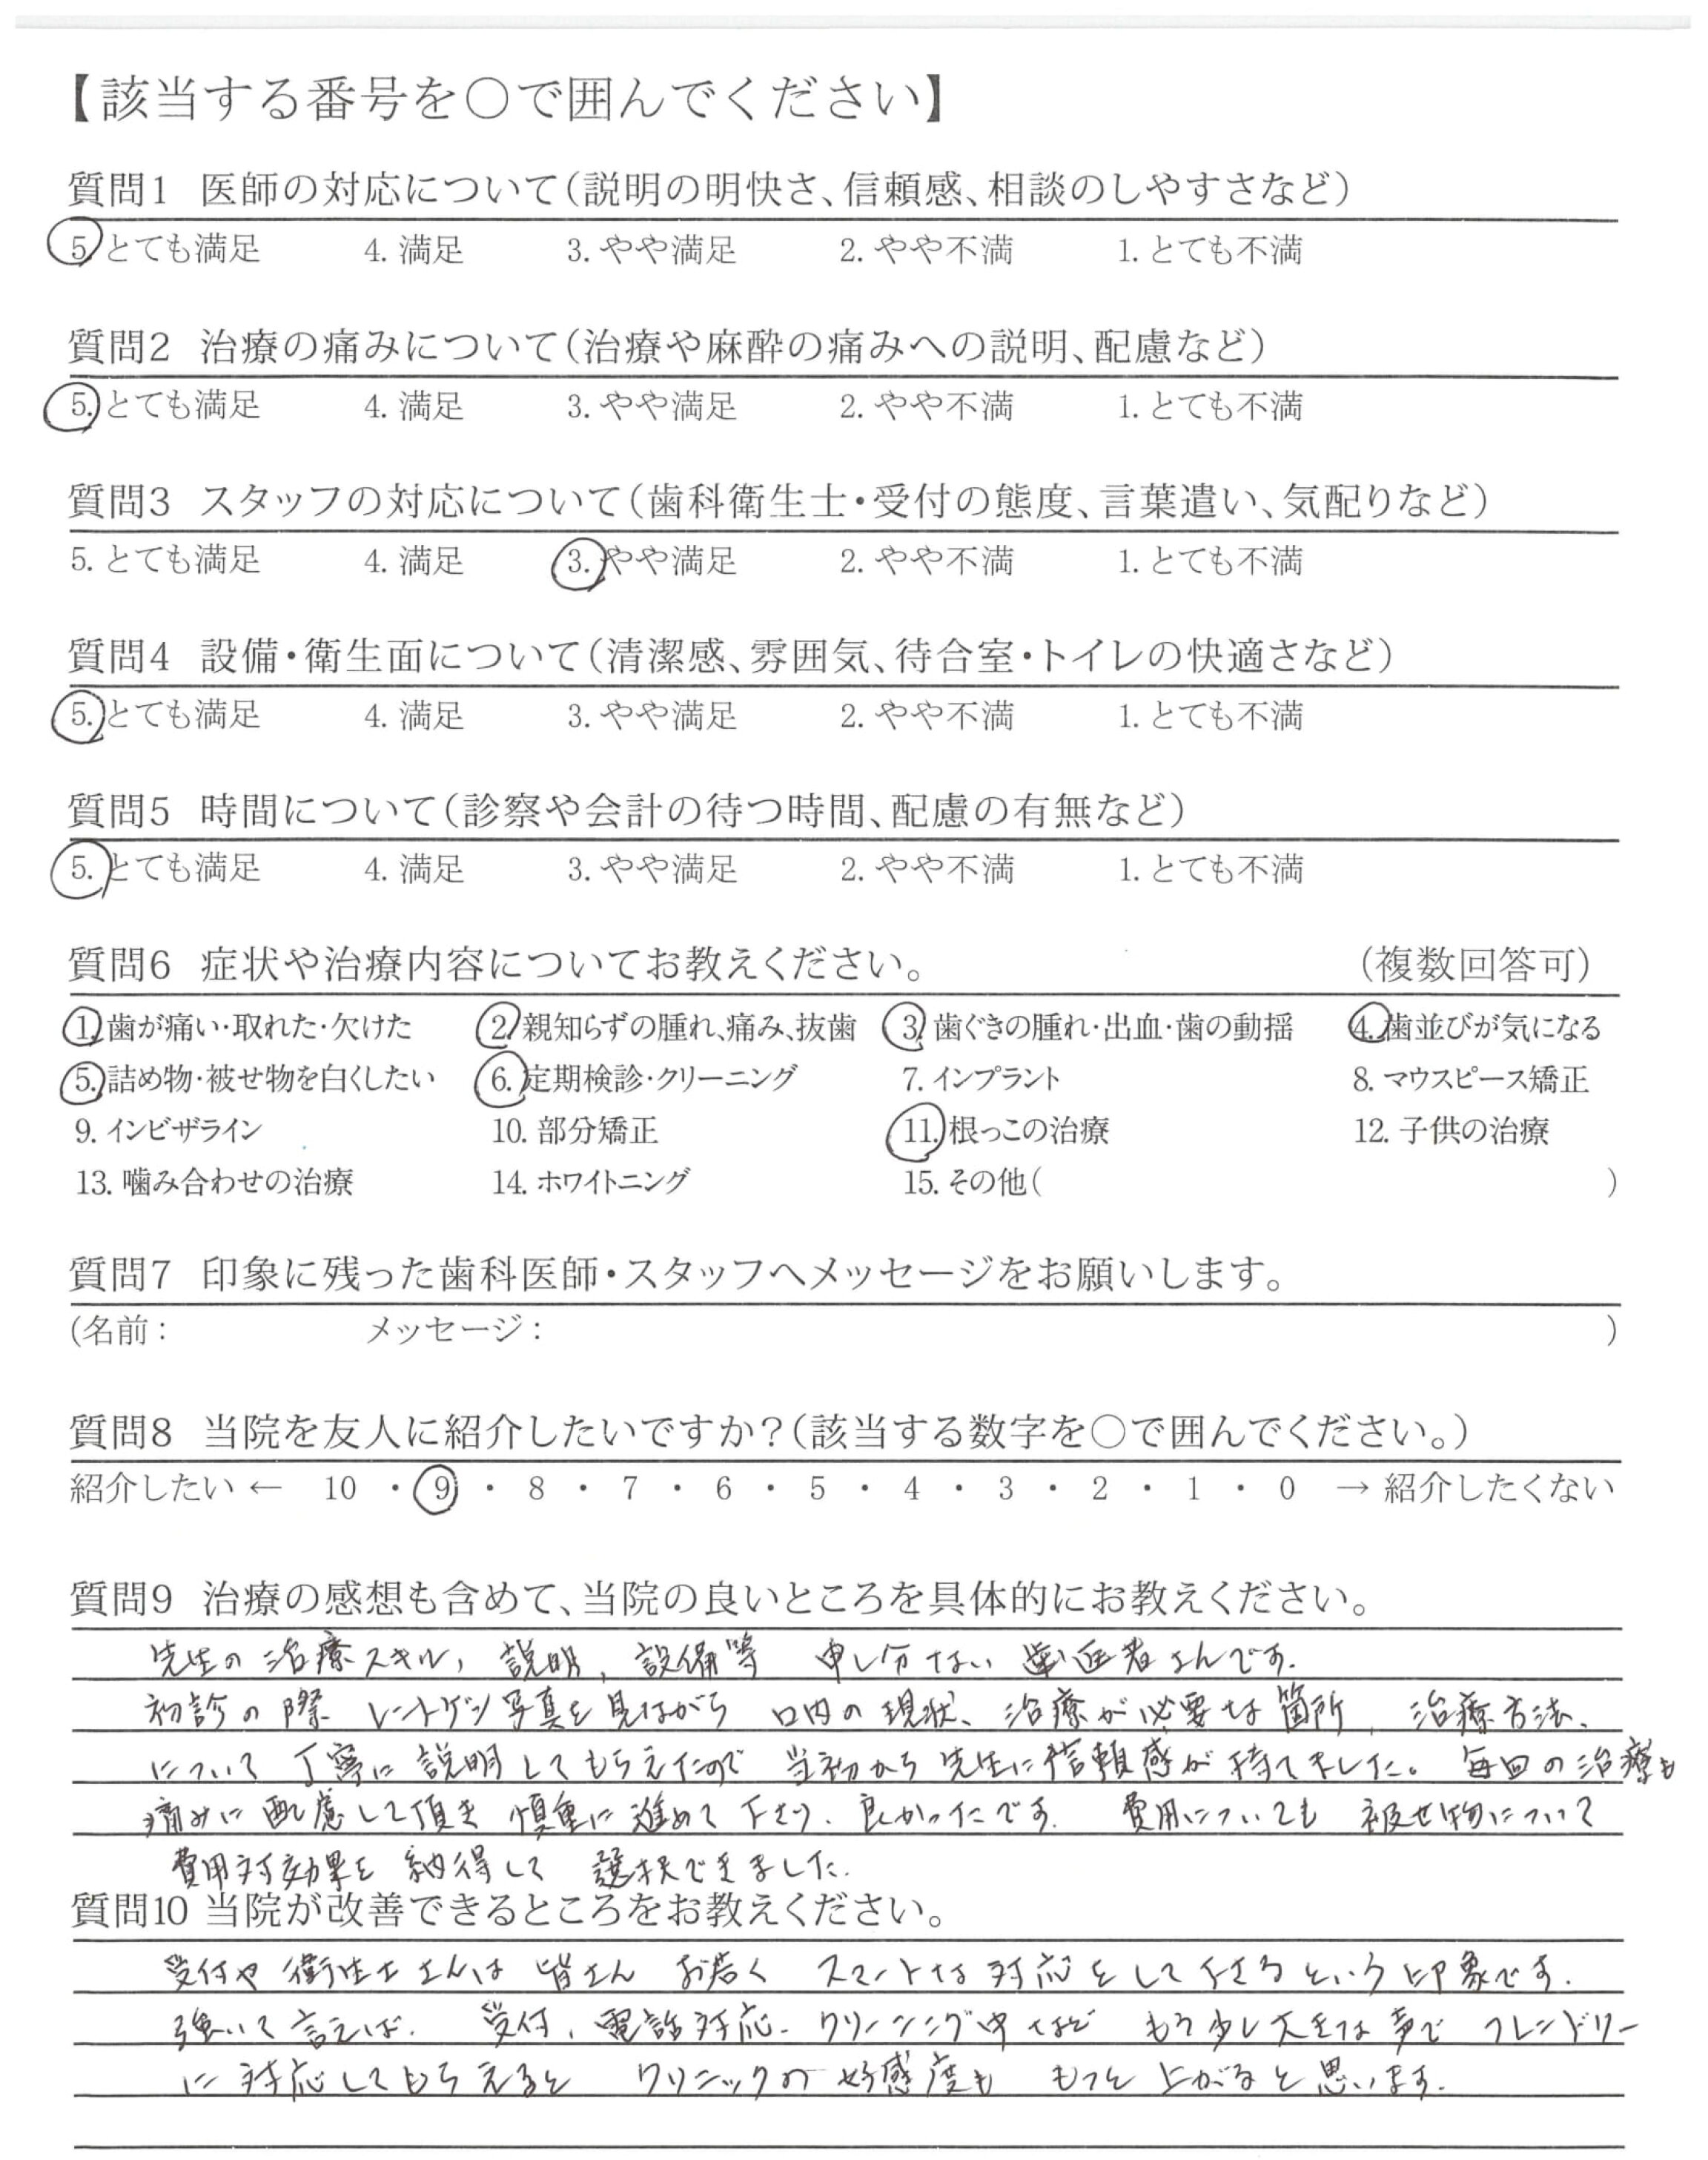 【該当する番号を○で囲んでください】
質問1 医師の対応について（説明の明快さ、信頼感、相談のしやすさなど）
5. とても満足 4. 満足 3. やや満足 2. やや不満 1. とても不満
質問2 治療の痛みについて（治療や麻酔の痛みへの説明、配慮など）
5. とても満足 4. 満足 3. やや満足 2. やや不満 1. とても不満
質問3 スタッフの対応について（歯科衛生士・受付の態度、言葉遣い、気配りなど）
5. とても満足 4. 満足 3. やや満足 2. やや不満 1. とても不満
質問4 設備・衛生面について（清潔感、雰囲気、待合室・トイレの快適さなど）
5. とても満足 4. 満足 3. やや満足 2. やや不満 1. とても不満
質問5 時間について（診察や会計の待つ時間、配慮の有無など）
5. とても満足 4. 満足 3. やや満足 2. やや不満 1. とても不満
質問6 症状や治療内容についてお教えください。 （複数回答可）
1. 歯が痛い・取れた・欠けた 2. 親知らずの腫れ、痛み、抜歯 3. 歯ぐきの腫れ・出血・歯の動揺 4. 歯並びが気になる
5. 詰め物・被せ物を白くしたい 6. 定期検診・クリーニング 7. インプラント 8. マウスピース矯正
9. インビザライン 10. 部分矯正 11. 根っこの治療 12. 子供の治療
13. 噛み合わせの治療 14. ホワイトニング 15. その他（ ）
質問7 印象に残った歯科医師・スタッフへメッセージをお願いします。
(名前： メッセージ： )
質問8 当院を友人に紹介したいですか？（該当する数字を○で囲んでください。）
紹介したい ← 10 ・ 9 ・ 8 ・ 7 ・ 6 ・ 5 ・ 4 ・ 3 ・ 2 ・ 1 ・ 0 → 紹介したくない
質問9 治療の感想も含めて、当院の良いところを具体的にお教えください。
先生の治療スキル、説明、設備等 申し分ない歯医者さんです。
初診の際 レントゲン写真を見ながら 口内の現状、治療が必要な箇所、治療方法、
について 丁寧に説明してもらえたので 当初から先生に信頼感が持てました。毎回の治療も
痛みに配慮して頂き 慎重に進めて下さり、良かったです。 費用についても 被せ物について
費用対効果を 納得して 選択できました。
質問10 当院が改善できるところをお教えください。
受付や衛生士さんは 皆さん お若く スマートな対応をして下さるという印象です。
強いて言えば、 受付、電話対応、クリーニング中など もう少し大きな声で フレンドリー
に対応してもらえると クリニックの好感度も もっと上がると思います。